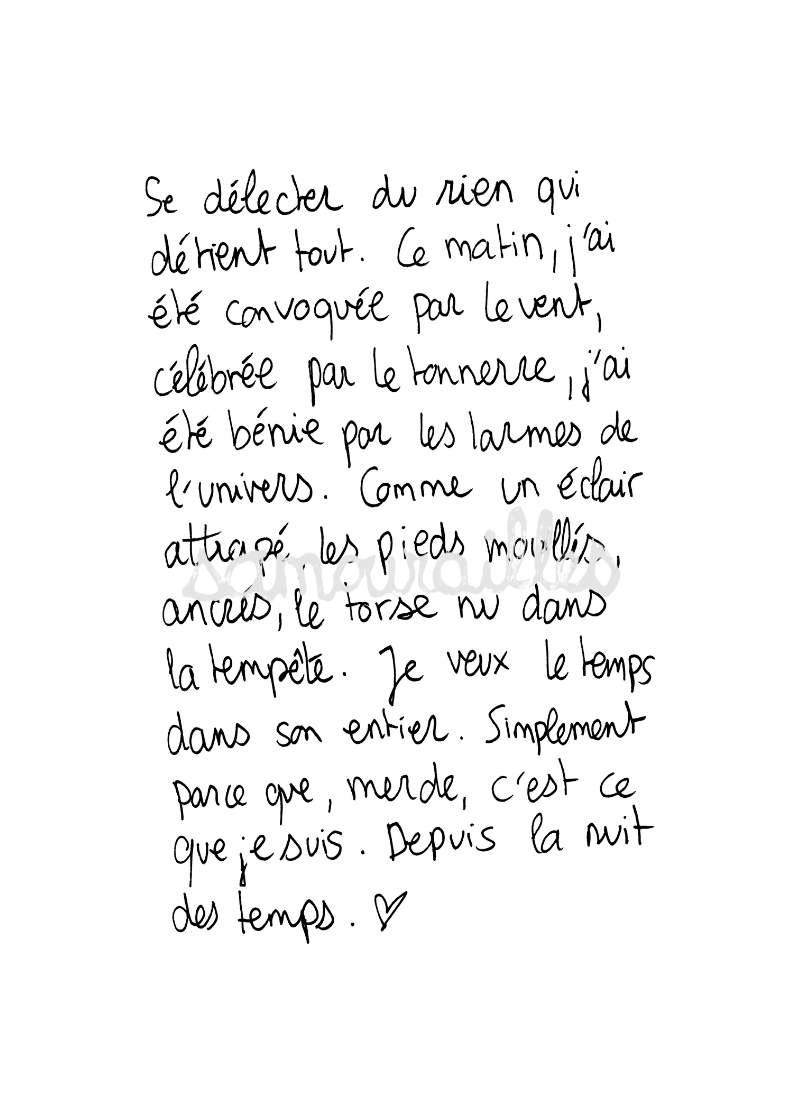 Se délecter du rien qui
détient tout. Ce matin, j'ai
été convoquée par le vent,
célébrée par le tonnerre, j'ai
été bénie par les larmes de
l'univers. Comme un éclair
attrapé, les pieds mouillés,
samouraailles
ancrés, le torse nu dans
la tempête. Je veux le temps
dans son entier. Simplement
parce que, merde, c'est ce
que je suis. Depuis la nuit
des temps. ♡